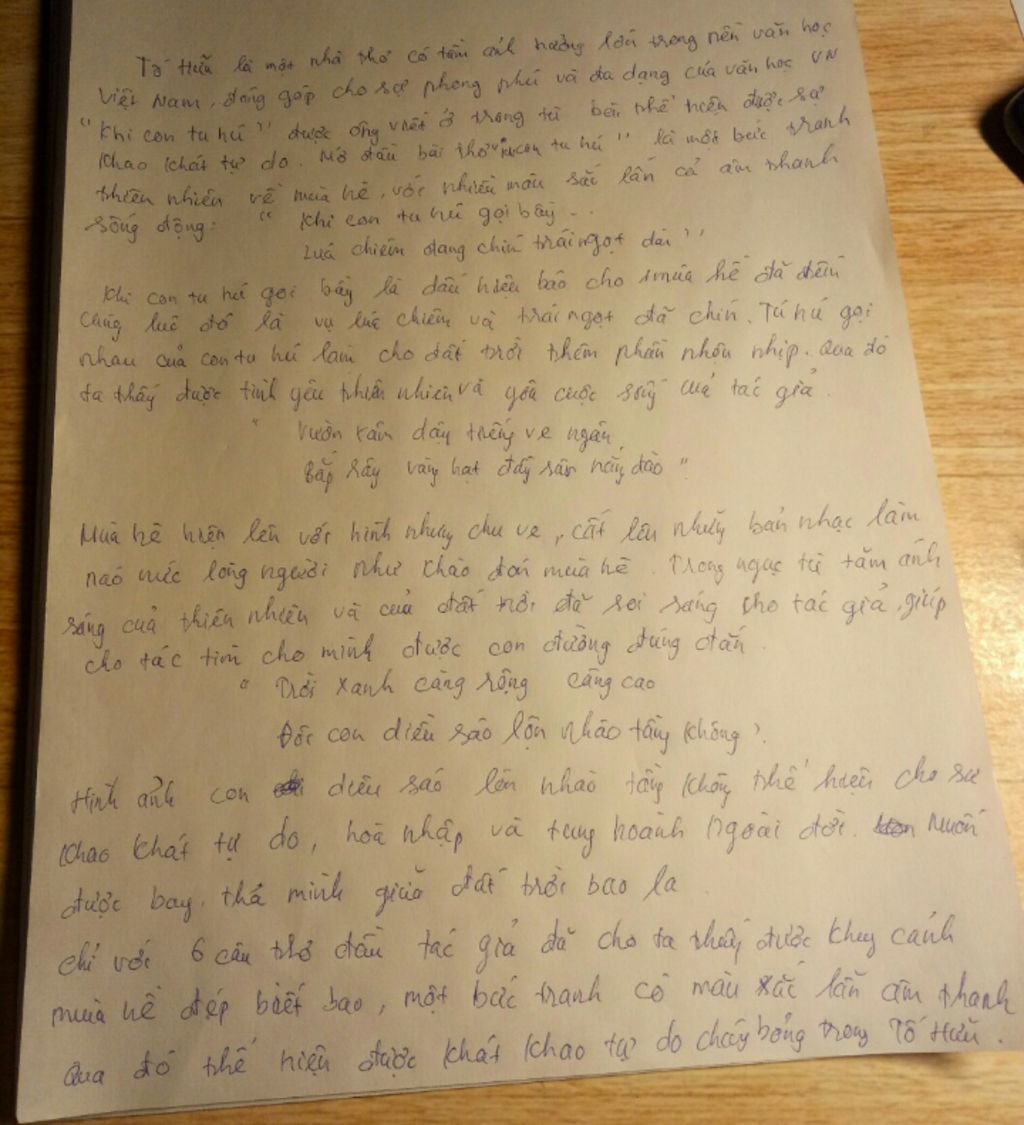 Tố Hữu là một nhà thơ có tầm ảnh hưởng lớn trong nền văn học
Việt Nam, đóng góp cho sự phong phú và đa dạng của văn học VN
"Khi con tu hú" được ông viết ở trong tù bởi thể hiện được sự
khao khát tự do. Mở đầu bài thơ "khi con tu hú" là một bức tranh
thiên nhiên về mùa hè, với nhiều màu sắc lẫn cả âm thanh
sống động: "Khi con tu hú gọi bầy...
Luá chiêm đang chín trái ngọt dần"
Khi con tu hú gọi bầy là dấu hiệu báo cho mùa hề đã đến
cùng lúc đó là vụ lúc chiêm và trái ngọt đã chín. Tú hú gọi
nhau của con tu hú làm cho đất trời thêm phần nhôn nhịp. Qua đó
ta thấy được tình yêu thiên nhiên và yêu cuộc sống cuả tác giả.
"Vườn râm dậy tiếng ve ngân
Bắp rây vàng hạt đầy sân nắng đào"
Mùa hè hiện lên với hình nhưng chu ve, cất lên những bản nhạc làm
naó nức lòng người như chào đón mùa hè. Trong ngục tù tăm ánh
sáng cuả thiên nhiên và cuả đất trời đã soi sáng cho tác giả, giúp
cho tác tìm cho mình được con đường đúng đắn.
"Trời xanh càng rộng càng cao
Đôi con diều sáo lộn nhào tầng không".
Hình ảnh con diều saó lộn nhaò tầng không thể hiện cho sự
khao khát tự do, hoà nhập và tung hoành ngoài đời. Muốn
được bay. thả mình giữa đất trời bao la.
chỉ với 6 câu thơ đầu tác giả đã cho ta thấy được khung cảnh
mùa hè đẹp biết bao, một bức tranh có màu xắc lẫn âm thanh
Qua đó thể hiện được khát khao tự do cháy bỏng trong Tố Hữu.